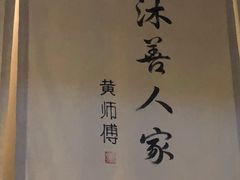 沐善人家
黄师傅